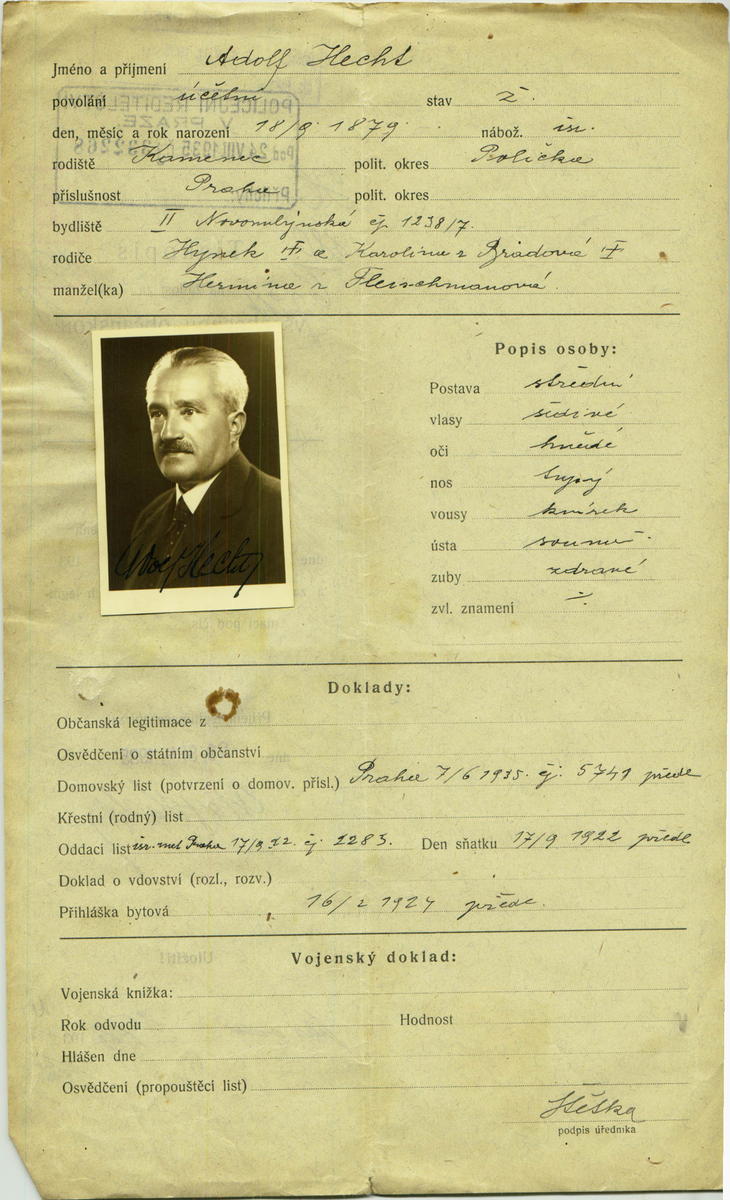 Jméno a příjmení Adolf Hecht
povolání účetní stav ž.
den, měsíc a rok narození 18/9. 1879. nábož. isr.
rodiště Kamenec polit. okres Polička
příslušnost Praha polit. okres
bydliště II Novomlýnská čj 1238/7.
rodiče Hynek † a Karolina r Bradová †
manžel(ka) Hermina r Fleischmanová
POLICEJNÍ ŘEDITELSTVÍ
V PRAZE.
24.VIII.1935
Příchozí
Popis osoby:
Postava střední
vlasy šedivé
oči hnědé
nos tupý
vousy knírek
ústa souměr.
zuby zdravé
zvl. znamení ÷
Adolf Hecht
Doklady:
Občanská legitimace z
Osvědčení o státním občanství
Domovský list (potvrzení o domov. přísl.) Praha 7/6 1935. čj. 5741 předl
Křestní (rodný) list
Oddací list isr. mat Praha 17/9 22. čj. 2283. Den sňatku 17/9 1922 předl
Doklad o vdovství (rozl., rozv.)
Přihláška bytová 16/2 1924 předl.
Vojenský doklad:
Vojenská knížka:
Rok odvodu Hodnost
Hlášen dne
Osvědčení (propouštěcí list)
podpis úředníka